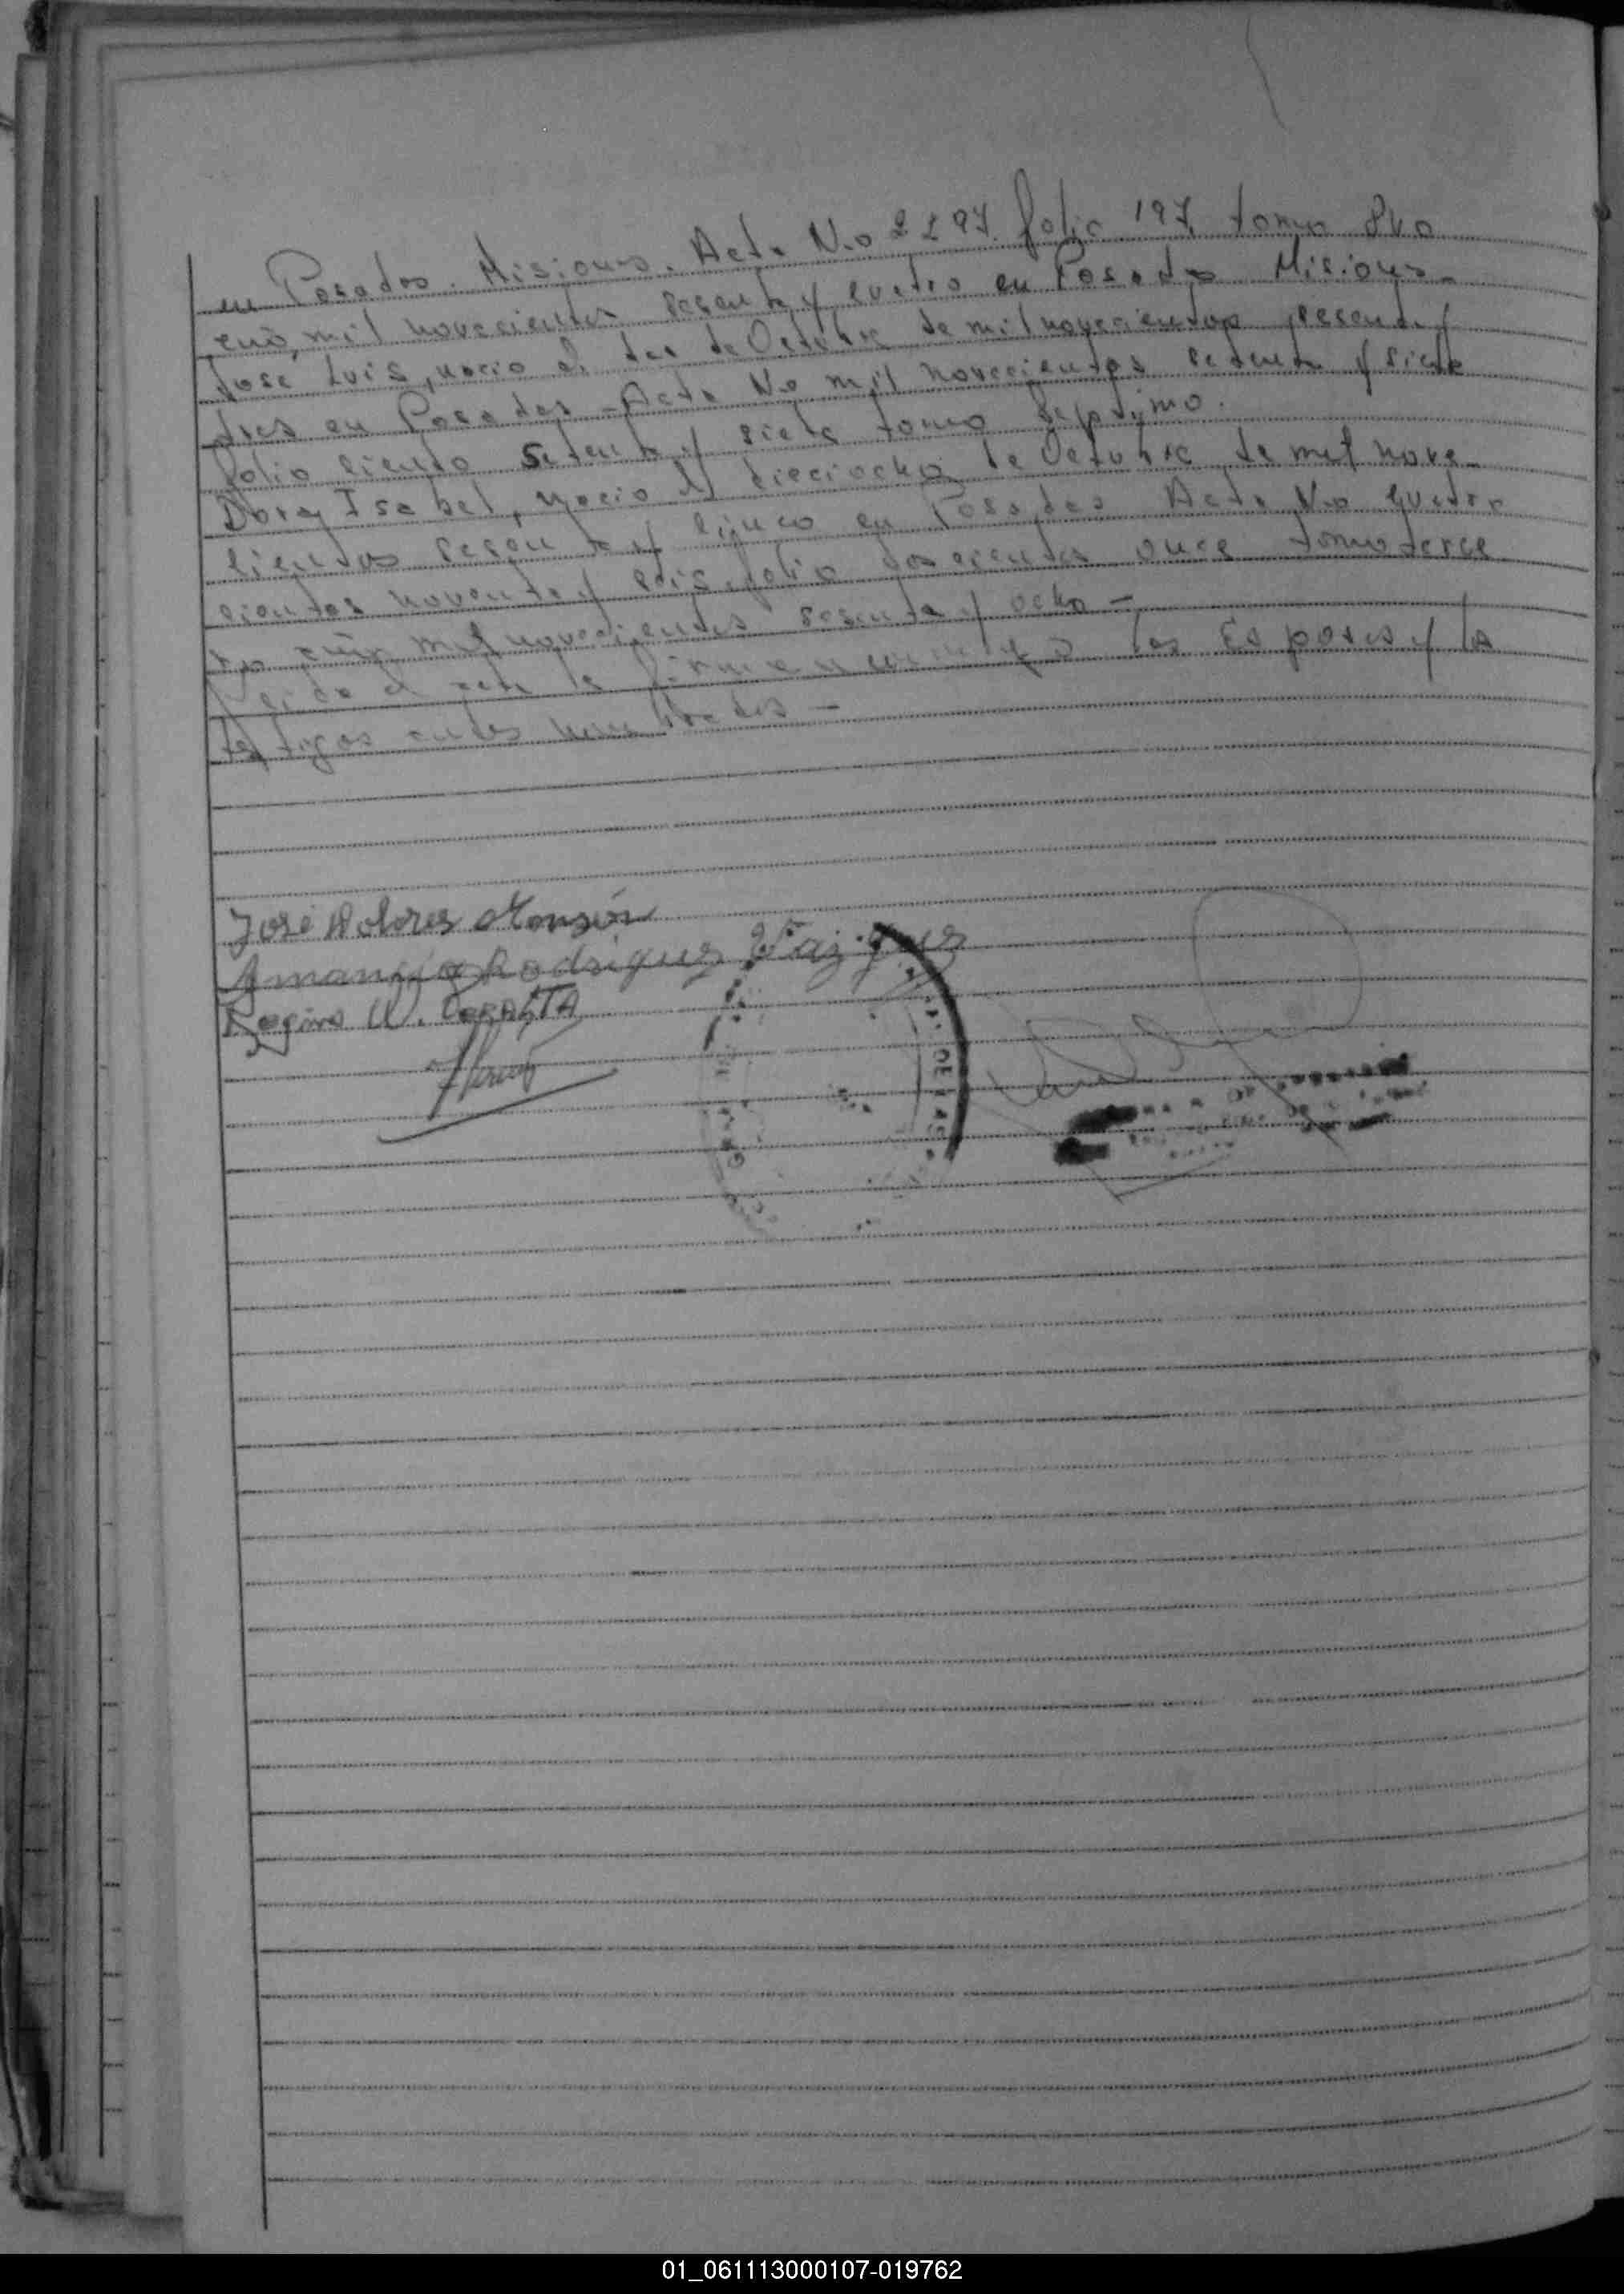 en Posadas. Misiones. Acta No 2197. folio 197 tomo 8vo
año mil novecientos sesenta y cuatro en Posadas Misiones
José Luis, nacio el tres de Octubre de mil novecientos sesenta y
tres en Posadas - Acta No mil novecientos setenta y siete
folio ciento setenta y siete tomo septimo.
Dora Isabel, nacio el dieciocho de Octubre de mil nove-
cientos sesenta y cinco en Posadas Acta No cuatro
cientos noventa y seis, folio doscientos once tomo terce
ro año mil novecientos sesenta y ocho -
Leida el acta la firman conmigo los Esposos y los
testigos antes nombrados -
José Dolores Monzón
Amancio Rodriguez Vazquez
Regino W. PERALTA
01_061113000107-019762